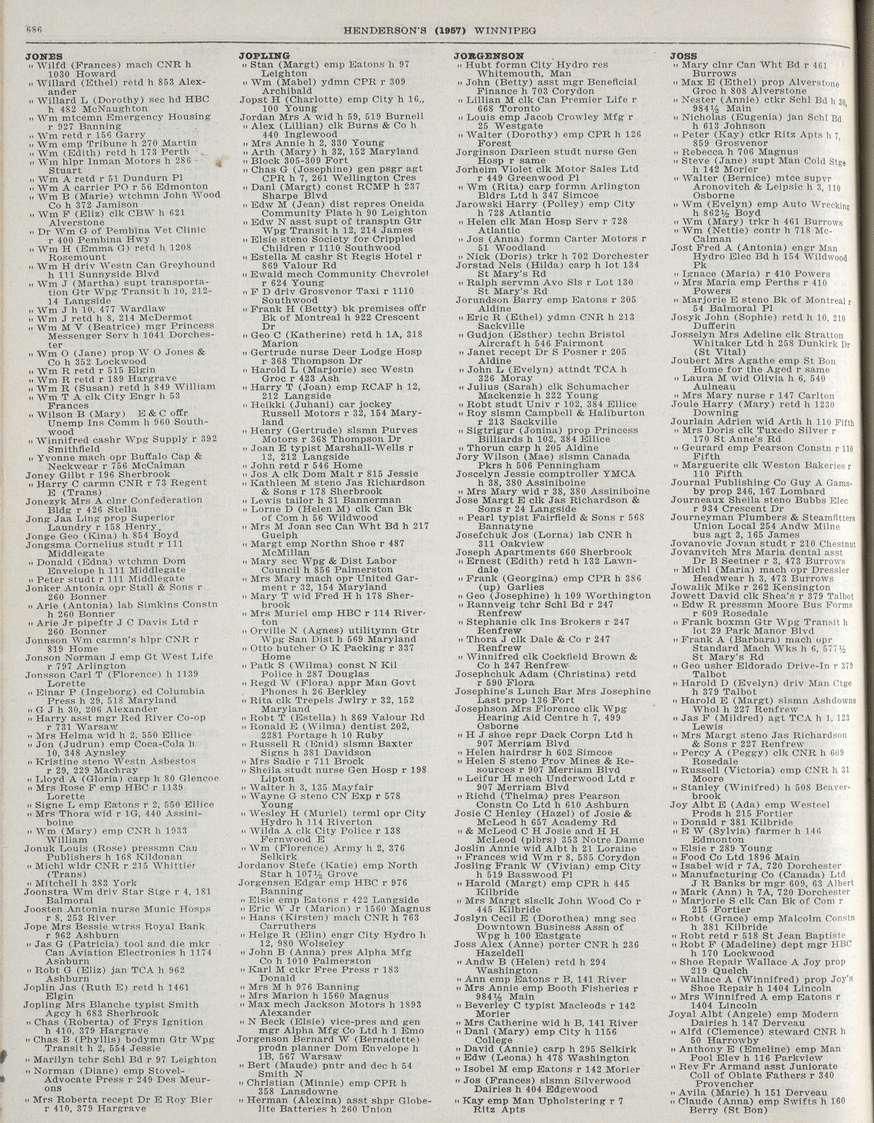 686
HENDERSON'S (1957) WINNIPEG
JONES
" Wilfd (Frances) mach CNR h
1030 Howard
" Willard (Ethel) retd h 853 Alex-
ander
" Willard L (Dorothy) sec hd HBC
h 482 McNaughton
" Wm mtcemn Emergency Housing
r 927 Banning
" Wm retd r 156 Garry
" Wm emp Tribune h 270 Martin
" Wm (Edith) retd h 173 Perth
" Wm hlpr Inman Motors h 286
Stuart
" Wm A retd r 51 Dundurn Pl
" Wm A carrier PO r 56 Edmonton
" Wm B (Marie) wtchmn John Wood
Co h 372 Jamison
" Wm F (Eliz) clk CBW h 621
Alverstone
" Dr Wm G of Pembina Vet Clinic
r 400 Pembina Hwy
" Wm H (Emma G) retd h 1208
Rosemount
" Wm H driv Westn Can Greyhound
h 111 Sunnyside Blvd
" Wm J (Martha) supt transporta-
tion Gtr Wpg Transit h 10, 212-
14 Langside
" Wm J h 10, 477 Wardlaw
" Wm J retd h 8, 214 McDermot
" Wm M V (Beatrice) mgr Princess
Messenger Serv h 1041 Dorches-
ter
" Wm O (Jane) prop W O Jones &
Co h 352 Lockwood
" Wm R retd r 515 Elgin
" Wm R retd r 189 Hargrave
" Wm R (Susan) retd h 849 William
" Wm T A clk City Engr h 53
Frances
" Wilson B (Mary) E & C offr
Unemp Ins Comm h 960 South-
wood
" Winnifred cashr Wpg Supply r 392
Smithfield
" Yvonne mach opr Buffalo Cap &
Neckwear r 756 McCalman
Joney Gilbt r 196 Sherbrook
" Harry C carmn CNR r 73 Regent
E (Trans)
Jonezyk Mrs A clnr Confederation
Bldg r 426 Stella
Jong Jaa Ling prop Superior
Laundry r 158 Henry
Jonge Geo (Kina) h 854 Boyd
Jongsma Cornelius studt r 111
Middlegate
" Donald (Edna) wtchmn Dom
Envelope h 111 Middlegate
" Peter studt r 111 Middlegate
Jonker Antonia opr Stall & Sons r
260 Bonner
" Arie (Antonia) lab Simkins Constn
h 260 Bonner
" Arie Jr pipeftr J C Davis Ltd r
260 Bonner
Jonnson Wm carmn's hlpr CNR r
819 Home
Jonson Norman J emp Gt West Life
r 797 Arlington
Jonsson Carl T (Florence) h 1139
Lorette
" Einar P (Ingeborg) ed Columbia
Press h 29, 518 Maryland
" G J h 30, 206 Alexander
" Harry asst mgr Red River Co-op
r 731 Warsaw
" Mrs Helma wid h 2, 550 Ellice
" Jon (Judrun) emp Coca-Cola h
10, 348 Aynsley
" Kristine steno Westn Asbestos
r 29, 229 Machray
" Lloyd A (Gloria) carp h 80 Glencoe
" Mrs Rose F emp HBC r 1139
Lorette
" Signe L emp Eatons r 2, 550 Ellice
" Mrs Thora wid r 1G, 440 Assini-
boine
" Wm (Mary) emp CNR h 1933
William
Jonuk Louis (Rose) pressmn Can
Publishers h 168 Kildonan
" Michl wldr CNR r 215 Whittier
(Trans)
" Mitchell h 383 York
Joonstra Wm driv Star Stge r 4, 181
Balmoral
Joosten Antonia nurse Munic Hosps
r 8, 253 River
Jope Mrs Bessie wtrss Royal Bank
r 962 Ashburn
" Jas G (Patricia) tool and die mkr
Can Aviation Electronics h 1174
Ashburn
" Robt G (Eliz) jan TCA h 962
Ashburn
Joplin Jas (Ruth E) retd h 1461
Elgin
Jopling Mrs Blanche typist Smith
Agcy h 683 Sherbrook
" Chas (Roberta) of Frys Ignition
h 410, 379 Hargrave
" Chas B (Phyllis) bodymn Gtr Wpg
Transit h 2, 554 Jessie
" Marilyn tchr Schl Bd r 97 Leighton
" Norman (Diane) emp Stovel-
Advocate Press r 249 Des Meur-
ons
" Mrs Roberta recept Dr E Roy Bier
r 410, 379 Hargrave
JOPLING
" Stan (Margt) emp Eatons h 97
Leighton
" Wm (Mabel) ydmn CPR r 309
Archibald
Jopst H (Charlotte) emp City h 16,
100 Young
Jordan Mrs A wid h 59, 519 Burnell
" Alex (Lillian) clk Burns & Co h
440 Inglewood
" Mrs Annie h 2, 330 Young
" Arth (Mary) h 32, 152 Maryland
" Block 305-309 Fort
" Chas G (Josephine) gen psgr agt
CPR h 7, 261 Wellington Cres
" Danl (Margt) const RCMP h 237
Sharpe Blvd
" Edw M (Jean) dist repres Oneida
Community Plate h 90 Leighton
" Edw N asst supt of transptn Gtr
Wpg Transit h 12, 214 James
" Elsie steno Society for Crippled
Children r 1110 Southwood
" Estella M cashr St Regis Hotel r
869 Valour Rd
" Ewald mech Community Chevrolet
r 624 Young
" F D driv Grosvenor Taxi r 1110
Southwood
" Frank H (Betty) bk premises offr
Bk of Montreal h 922 Crescent
Dr
" Geo C (Katherine) retd h 1A, 318
Marion
" Gertrude nurse Deer Lodge Hosp
r 368 Thompson Dr
" Harold L (Marjorie) sec Westn
Groc r 423 Ash
" Harry T (Joan) emp RCAF h 12,
212 Langside
" Heikki (Juhani) car jockey
Russell Motors r 32, 154 Mary-
land
" Henry (Gertrude) slsmn Purves
Motors r 368 Thompson Dr
" Joan E typist Marshall-Wells r
12, 212 Langside
" John retd r 546 Home
" Jos A clk Dom Malt r 815 Jessie
" Kathleen M steno Jas Richardson
& Sons r 178 Sherbrook
" Lewis tailor h 31 Bannerman
" Lorne D (Helen M) clk Can Bk
of Com h 56 Wildwood
" Mrs M Joan sec Can Wht Bd h 217
Guelph
" Margt emp Northn Shoe r 487
McMillan
" Mary sec Wpg & Dist Labor
Council h 856 Palmerston
" Mrs Mary mach opr United Gar-
ment r 32, 154 Maryland
" Mary T wid Fred H h 178 Sher-
brook
" Mrs Muriel emp HBC r 114 River-
ton
" Orville N (Agnes) utilitymn Gtr
Wpg San Dist h 569 Maryland
" Otto butcher O K Packing r 337
Home
" Patk S (Wilma) const N Kil
Police h 287 Douglas
" Regd W (Flora) appr Man Govt
Phones h 26 Berkley
" Rita clk Trepels Jwlry r 32, 152
Maryland
" Robt T (Estella) h 869 Valour Rd
" Ronald E (Wilma) dentist 202,
2281 Portage h 10 Ruby
" Russell R (Enid) slsmn Baxter
Signs h 381 Davidson
" Mrs Sadie r 711 Brock
" Sheila studt nurse Gen Hosp r 198
Lipton
" Walter h 3, 135 Mayfair
" Wayne G steno CN Exp r 578
Young
" Wesley H (Muriel) terml opr City
Hydro h 114 Riverton
" Wilda A clk City Police r 138
Fernwood E
" Wm (Florence) Army h 2, 376
Selkirk
Jordanov Stefe (Katie) emp North
Star h 107½ Grove
Jorgensen Edgar emp HBC r 976
Banning
" Elsie emp Eatons r 422 Langside
" Eric W Jr (Marion) r 1560 Magnus
" Hans (Kirsten) mach CNR h 763
Carruthers
" Helge R (Elin) engr City Hydro h
12, 980 Wolseley
" John B (Anna) pres Alpha Mfg
Co h 1010 Palmerston
" Karl M ctkr Free Press r 183
Donald
" Mrs M h 976 Banning
" Mrs Marion h 1560 Magnus
" Max mech Jackson Motors h 1893
Alexander
" N Beck (Elsie) vice-pres and gen
mgr Alpha Mfg Co Ltd h 1 Emo
Jorgenson Bernard W (Bernadette)
prodn planner Dom Envelope h
1B, 567 Warsaw
" Bert (Maude) pntr and dec h 54
Smith N
" Christian (Minnie) emp CPR h
358 Lansdowne
" Herman (Alexina) asst shpr Globe-
lite Batteries h 260 Union
JORGENSON
" Hubt formn City Hydro res
Whitemouth, Man
" John (Betty) asst mgr Beneficial
Finance h 703 Corydon
" Lillian M clk Can Premier Life r
668 Toronto
" Louis emp Jacob Crowley Mfg r
25 Westgate
" Walter (Dorothy) emp CPR h 126
Forest
Jorginson Darleen studt nurse Gen
Hosp r same
Jorheim Violet clk Motor Sales Ltd
r 449 Greenwood Pl
" Wm (Rita) carp formn Arlington
Bldrs Ltd h 347 Simcoe
Jarowski Harry (Polley) emp City
h 728 Atlantic
" Helen clk Man Hosp Serv r 728
Atlantic
" Jos (Anna) formn Carter Motors r
51 Woodland
" Nick (Doris) trkr h 702 Dorchester
Jorstad Nels (Hilda) carp h lot 134
St Mary's Rd
" Ralph servmn Avo Sls r Lot 130
St Mary's Rd
Jorundson Barry emp Eatons r 205
Aldine
" Eric R (Ethel) ydmn CNR h 213
Sackville
" Gudjon (Esther) techn Bristol
Aircraft h 546 Fairmont
" Janet recept Dr S Posner r 205
Aldine
" John L (Evelyn) attndt TCA h
326 Moray
" Julius (Sarah) clk Schumacher
Mackenzie h 222 Young
" Robt studt Univ r 102, 384 Ellice
" Roy slsmn Campbell & Haliburton
r 213 Sackville
" Sigtrigur (Jonina) prop Princess
Billiards h 102, 384 Ellice
" Thorun carp h 205 Aldine
Jory Wilson (Mae) slsmn Canada
Pkrs h 506 Penningham
Joscelyn Jessie comptrollor YMCA
h 38, 380 Assiniboine
" Mrs Mary wid r 38, 380 Assiniboine
Jose Margt E clk Jas Richardson &
Sons r 24 Langside
" Pearl typist Fairfield & Sons r 568
Bannatyne
Josefchuk Jos (Lorna) lab CNR h
311 Oakview
Joseph Apartments 660 Sherbrook
" Ernest (Edith) retd h 132 Lawn-
dale
" Frank (Georgina) emp CPR h 386
(up) Garlies
" Geo (Josephine) h 109 Worthington
" Rannveig tchr Schl Bd r 247
Renfrew
" Stephanie clk Ins Brokers r 247
Renfrew
" Thora J clk Dale & Co r 247
Renfrew
" Winnifred clk Cockfield Brown &
Co h 247 Renfrew
Josephchuk Adam (Christina) retd
r 590 Flora
Josephine's Lunch Bar Mrs Josephine
Last prop 126 Fort
Josephson Mrs Florence clk Wpg
Hearing Aid Centre h 7, 499
Osborne
" H J shoe repr Dack Corpn Ltd h
907 Merriam Blvd
" Helen hairdrsr h 602 Simcoe
" Helen S steno Prov Mines & Re-
sources r 907 Merriam Blvd
" Leifur H mech Underwood Ltd r
907 Merriam Blvd
" Richd (Thelma) pres Pearson
Constn Co Ltd h 610 Ashburn
Josie C Henley (Hazel) of Josie &
McLeod h 657 Academy Rd
" & McLeod C H Josie and H H
McLeod (plbrs) 353 Notre Dame
Joslin Annie wid Albt h 21 Loraine
" Frances wid Wm r 8, 585 Corydon
Josling Frank W (Vivian) emp City
h 519 Basswood Pl
" Harold (Margt) emp CPR h 445
Kilbride
" Mrs Margt slsclk John Wood Co r
445 Kilbride
Joslyn Cecil E (Dorothea) mng sec
Downtown Business Assn of
Wpg h 100 Eastgate
Joss Alex (Anne) porter CNR h 236
Hazeldell
" Andw B (Helen) retd h 294
Washington
" Ann emp Eatons r B, 141 River
" Mrs Annie emp Booth Fisheries r
984½ Main
" Beverley C typist Macleods r 142
Morier
" Mrs Catherine wid h B, 141 River
" Danl (Mary) emp City h 1156
College
" David (Annie) carp h 295 Selkirk
" Edw (Leona) h 478 Washington
" Isobel M emp Eatons r 142 Morier
" Jos (Frances) slsmn Silverwood
Dairies h 404 Edgewood
" Kay emp Man Upholstering r 7
Ritz Apts
JOSS
" Mary clnr Can Wht Bd r 461
Burrows
" Max E (Ethel) prop Alverstone
Groc h 808 Alverstone
" Nester (Annie) ctkr Schl Bd h 20,
984½ Main
" Nicholas (Eugenia) jan Schl Bd
h 613 Johnson
" Peter (Kay) ctkr Ritz Apts h 7,
859 Grosvenor
" Rebecca h 706 Magnus
" Steve (Jane) supt Man Cold Stge
h 142 Morier
" Walter (Bernice) mtce supvr
Aronovitch & Leipsic h 3, 110
Osborne
" Wm (Evelyn) emp Auto Wrecking
h 862½ Boyd
" Wm (Mary) trkr h 461 Burrows
" Wm (Nettie) contr h 718 Mc-
Calman
Jost Fred A (Antonia) engr Man
Hydro Elec Bd h 154 Wildwood
Pk
" Ignace (Maria) r 410 Powers
" Mrs Maria emp Perths r 410
Powers
" Marjorie E steno Bk of Montreal r
54 Balmoral Pl
Josyk John (Sophie) retd h 10, 210
Dufferin
Josselyn Mrs Adeline clk Stratton
Whitaker Ltd h 258 Dunkirk Dr
(St Vital)
Joubert Mrs Agathe emp St Bon
Home for the Aged r same
" Laura M wid Olivia h 6, 540
Aulneau
" Mrs Mary nurse r 147 Carlton
Joule Harry (Mary) retd h 1230
Downing
Jourlain Adrien wid Arth h 110 Fifth
" Mrs Doris clk Tuxedo Silver r
170 St Anne's Rd
" Geurard emp Pearson Constn r 110
Fifth
" Marguerite clk Weston Bakeries r
110 Fifth
Journal Publishing Co Guy A Gams-
by prop 246, 167 Lombard
Journeaux Sheila steno Bubbs Elec
r 934 Crescent Dr
Journeyman Plumbers & Steamfitters
Union Local 254 Andw Milne
bus agt 3, 165 James
Jovanovic Jovan studt r 210 Chestnut
Jovanvitch Mrs Maria dental asst
Dr B Seetner r 3, 473 Burrows
" Michl (Maria) mach opr Dressler
Headwear h 3, 473 Burrows
Jowalik Mike r 262 Kensington
Jowett David clk Shea's r 379 Talbot
" Edw R pressmn Moore Bus Forms
r 609 Rosedale
" Frank boxmn Gtr Wpg Transit h
lot 29 Park Manor Blvd
" Frank A (Barbara) mach opr
Standard Mach Wks h 6, 577½
St Mary's Rd
" Geo usher Eldorado Drive-In r 379
Talbot
" Harold D (Evelyn) driv Man Ctge
h 379 Talbot
" Harold E (Margt) slsmn Ashdowns
Whol h 227 Renfrew
" Jas F (Mildred) agt TCA h 1, 123
Lewis
" Mrs Margt steno Jas Richardson
& Sons r 227 Renfrew
" Percy A (Peggy) clk CNR h 609
Rosedale
" Russell (Victoria) emp CNR h 31
Moore
" Stanley (Winifred) h 508 Beaver-
brook
Joy Albt E (Ada) emp Westeel
Prods h 215 Fortier
" Donald r 381 Kilbride
" E W (Sylvia) farmer h 146
Edmonton
" Elsie r 289 Young
" Food Co Ltd 1896 Main
" Isabel wid r 7A, 720 Dorchester
" Manufacturing Co (Canada) Ltd
J R Banks br mgr 609, 63 Albert
" Mark (Ann) h 7A, 720 Dorchester
" Marjorie S clk Can Bk of Com r
215 Fortier
" Robt (Grace) emp Malcolm Constn
h 381 Kilbride
" Robt retd r 518 St Jean Baptiste
" Robt F (Madeline) dept mgr HBC
h 170 Lockwood
" Shoe Repair Wallace A Joy prop
219 Quelch
" Wallace A (Winifred) prop Joy's
Shoe Repair h 1404 Lincoln
" Mrs Winnifred A emp Eatons r
1404 Lincoln
Joyal Albt (Angele) emp Modern
Dairies h 147 Derveau
" Alfd (Clemence) steward CNR h
50 Harrowby
" Anthony E (Emeline) emp Man
Pool Elev h 116 Parkview
" Rev Fr Armand asst Juniorate
Coll of Oblate Fathers r 340
Provencher
" Avila (Marie) h 151 Derveau
" Claude (Anna) emp Swifts h 160
Berry (St Bon)